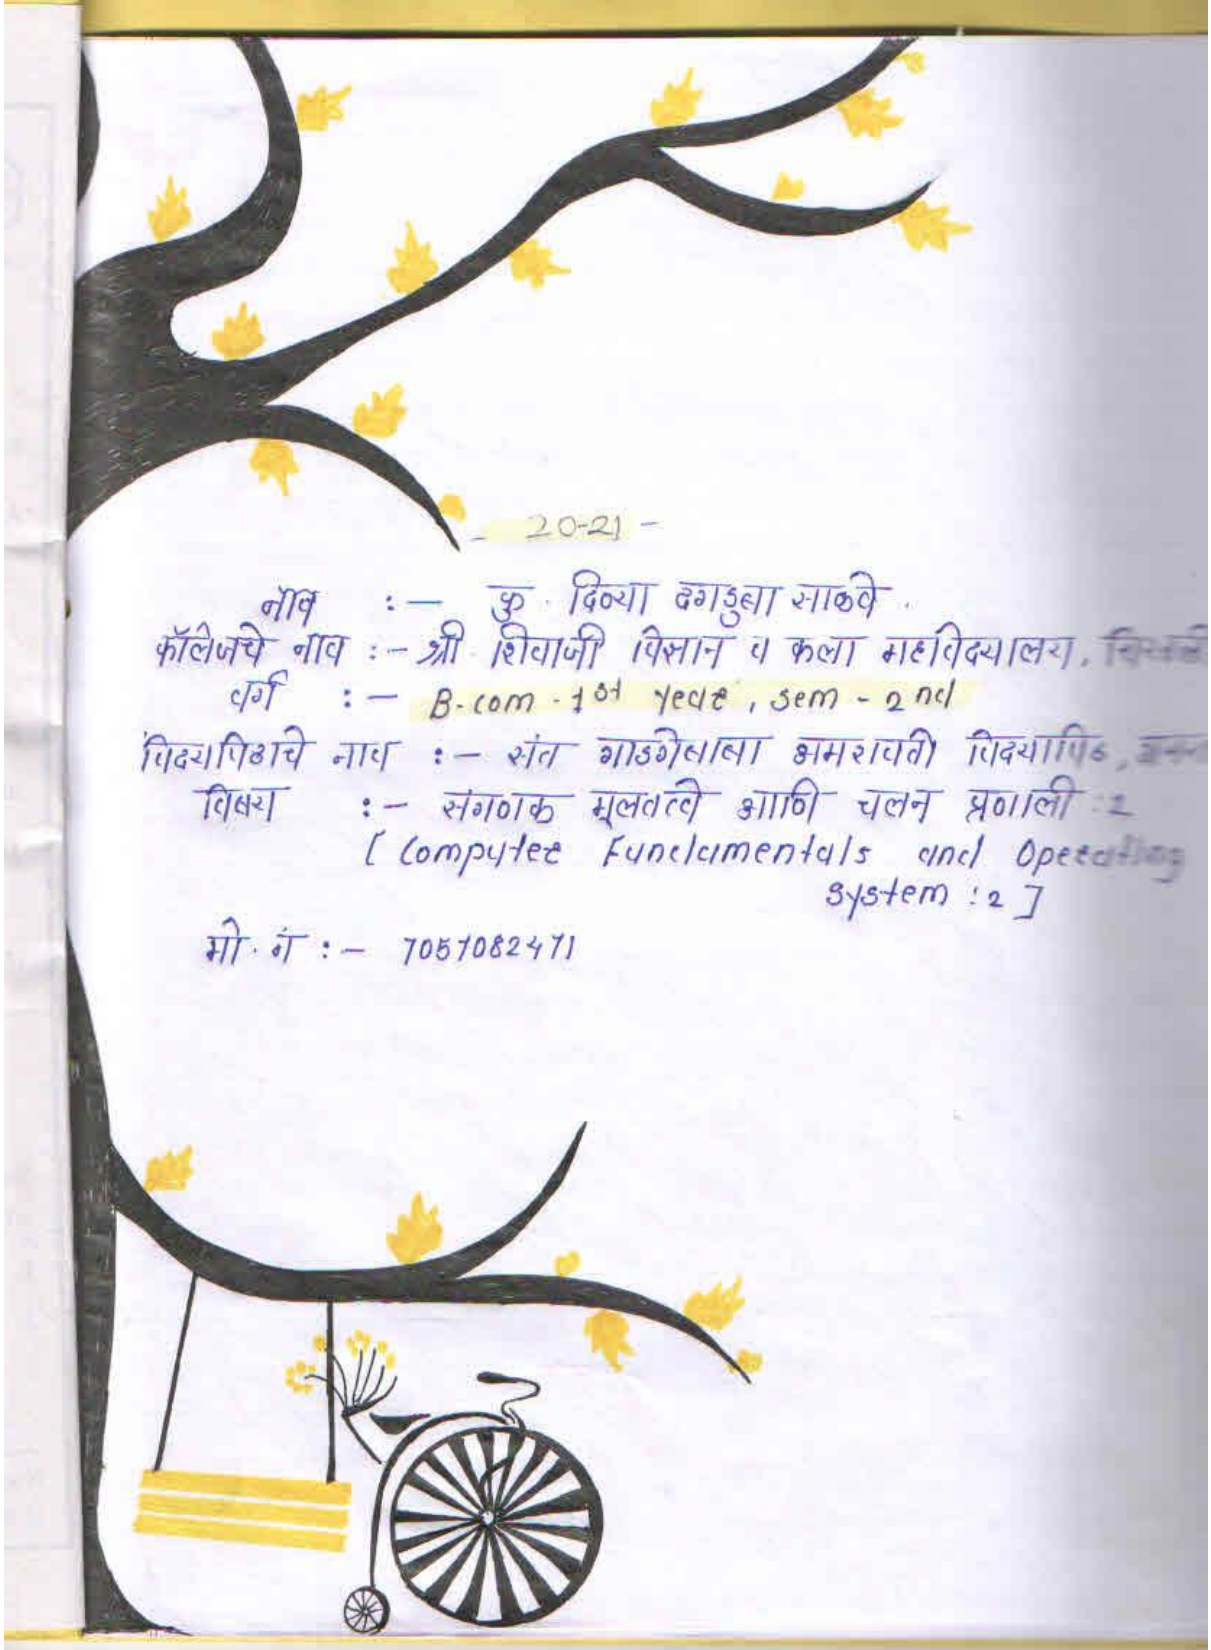 - 20-21 -
नाव :- कु. दिव्या दगडुबा साळवे.
कॉलेजचे नाव :- श्री. शिवाजी विज्ञान व कला महाविदयालय, चिखली
वर्ग :- B.com. 1st year, sem - 2nd
विदयापिठाचे नाव :- संत गाडगेबाबा अमरावती विदयापिठ,
विषय :- संगणक मूलतत्वे आणि चलन प्रणाली :2
[ Computer Fundamentals and Operating
system :2 ]
मो. नं :- 7057082471